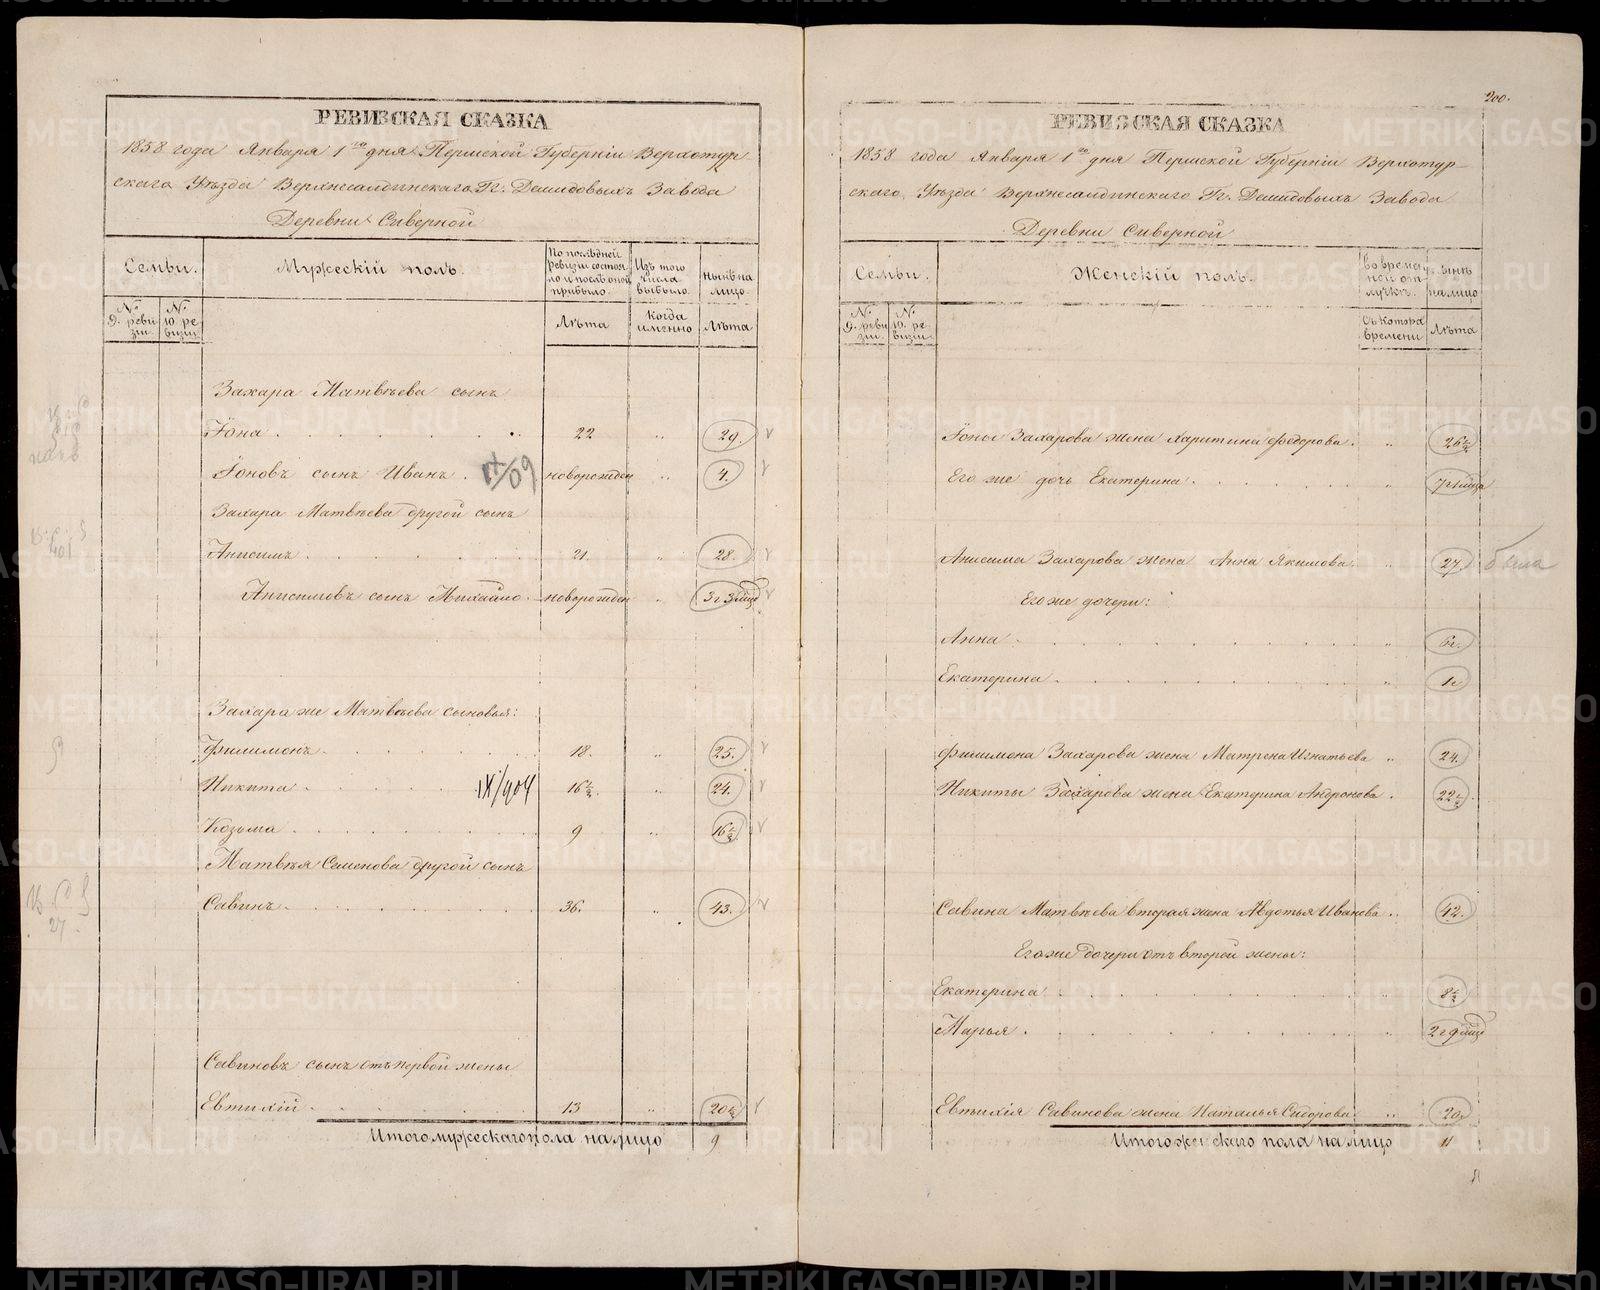 РЕВИЗСКАЯ СКАЗКА
1858 года Января 1го дня Пермской Губерніи Верхотур-
скаго Уѣзда Верхнесалдинскаго Гг. Демидовыхъ Завода
Деревни Сиверной
Семьи.
Мужескій полъ.
По послѣдней ревизіи состояло и послѣ оной прибыло.
Изъ того числа выбыло.
нынѣ на лицо
№ 9. ревизіи.
№ 10. ревизіи.
Лѣта
Когда именно
Лѣта
Захара Матвѣева сынъ
Іона . 22 „ 29.
Іоновъ сынъ Иванъ . IX/09 новорожден „ 4.
Захара Матвѣева другой сынъ
Анисимъ . 21. „ 28.
Анисимовъ сынъ Михайло новорожден „ 3 г 3 мца
Захара же Матвѣева сыновья:
Филимонъ . 18. „ 25.
Никита . IX/904 16½. „ 24.
Козьма . 9 „ 16½.
Матвѣя Семенова другой сынъ
Савинъ . 36. „ 43.
27.
Савиновъ сынъ отъ первой жены
Евтихій . 13 „ 20½
Итого мужескаго пола на лицо 9
200.
РЕВИЗСКАЯ СКАЗКА
1858 года Января 1го дня Пермской Губерніи Верхотур-
скаго Уѣзда Верхнесалдинскаго Гг. Демидовыхъ Завода
Деревни Сиверной
Семьи.
Женскій полъ.
Во временной отлучкѣ.
нынѣ на лицо
№ 9. ревизіи.
№ 10. ревизіи.
Съ котора времени
Лѣта
Іоны Захарова жена Харитина Федорова . „ 26½
Его же дочь Екатерина . 7 мца
Анисима Захарова жена Анна Якимова . „ 27.
Его же дочери:
Анна . „ 6 г.
Екатерина . „ 1 г
Филимона Захарова жена Матрена Игнатьева „ 24.
Никиты Захарова жена Екатерина Андронова . 22½
Савина Матвѣева вторая жена Авдотья Иванова . „ 42.
Его же дочери отъ второй жены:
Екатерина . 8½
Марья . 2 г 9 мца
Евтихія Савинова жена Наталья Сидорова . „ 20.
Итого женскаго пола на лицо 11
METRIKI.GASO-URAL.RU